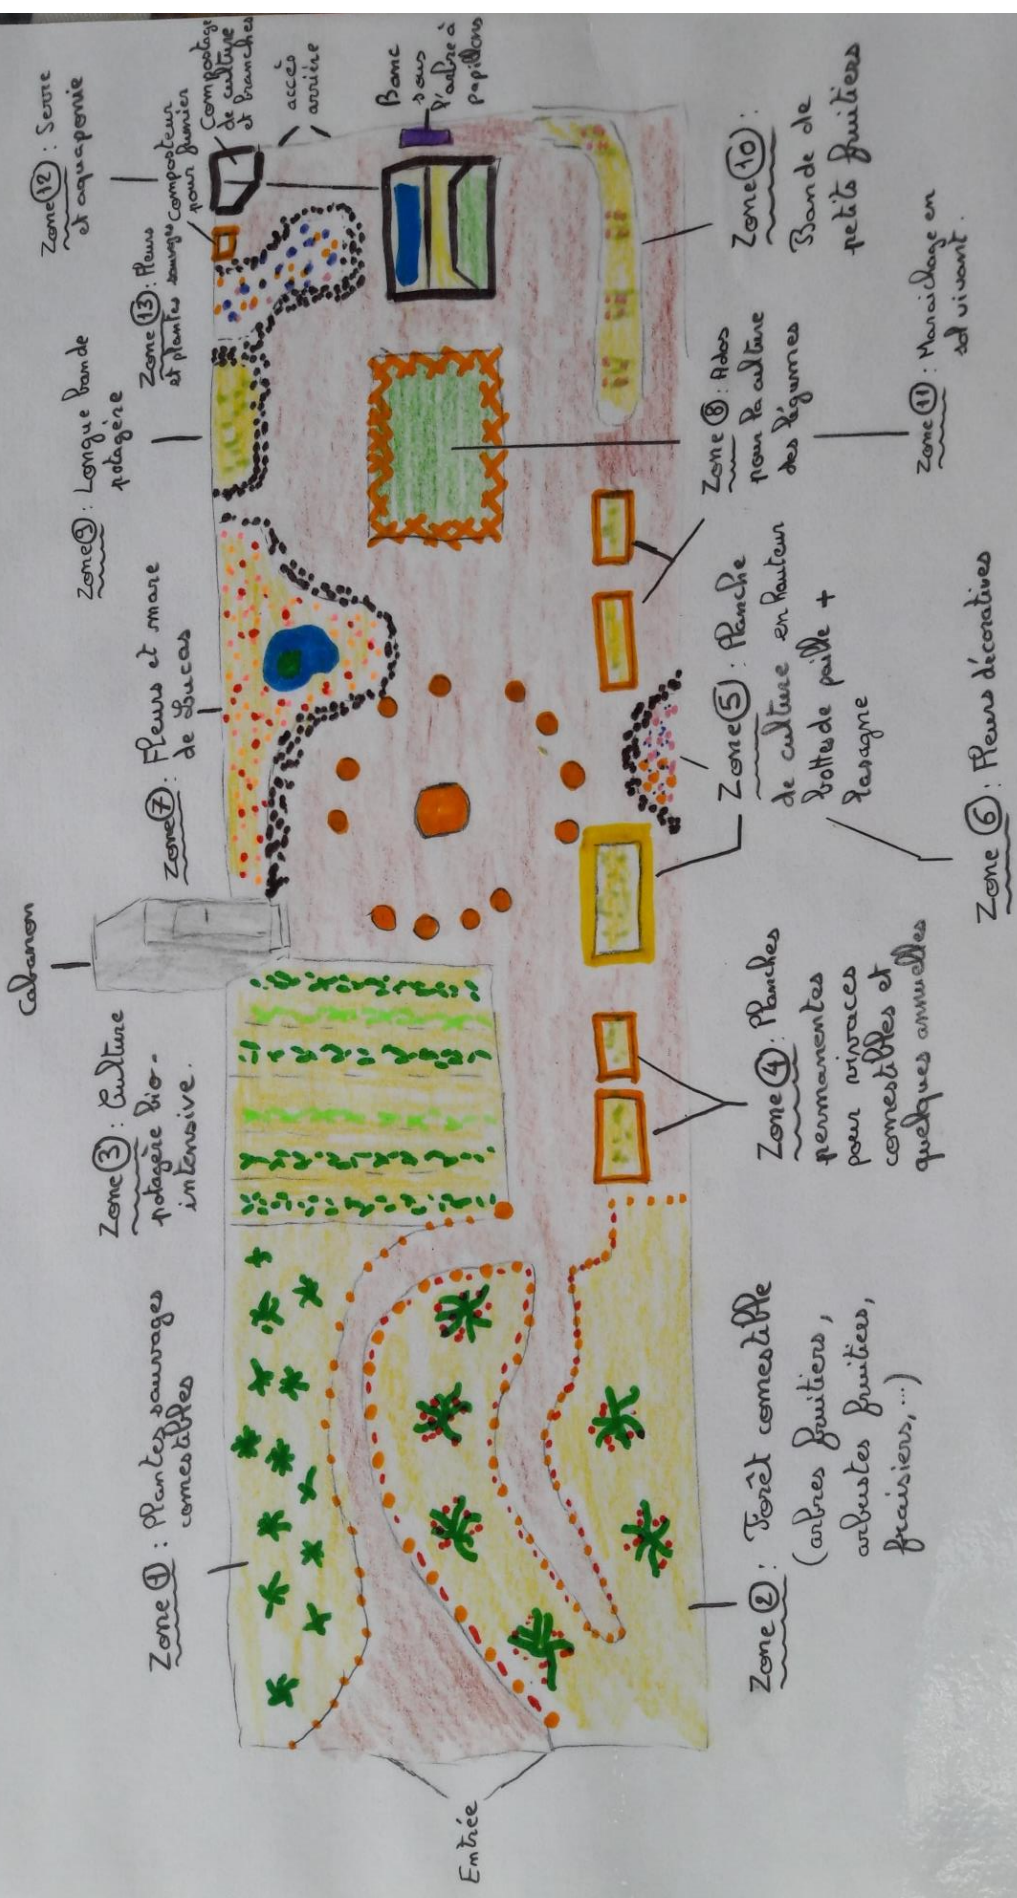 Cabanon
Zone 3 : Culture
potagère bio-
intensive.
Zone 1 : Plantes sauvages
comestibles
Zone 7 : Fleurs et mare
de Lucas
Zone 9 : Longue bande
potagère
Zone 13 : Fleurs
et plantes sauvages
Zone 12 : Serre
et aquaponie
Composteur
pour fumier
Compostage
de culture
et branches
accès
arrière
Banc
sous
l'arbre à
papillons
Entrée
Zone 2 : Forêt comestible
(arbres fruitiers,
arbustes fruitiers,
fraisiers, ...)
Zone 4 : Planches
permanentes
pour vivaces
comestibles et
quelques annuelles
Zone 5 : Planche
de culture en hauteur
bottes de paille +
lasagne
Zone 6 : Fleurs décoratives
Zone 8 : Ados
pour la culture
des légumes
Zone 11 : Maraichage en
sol vivant.
Zone 10 :
Bande de
petits fruitiers